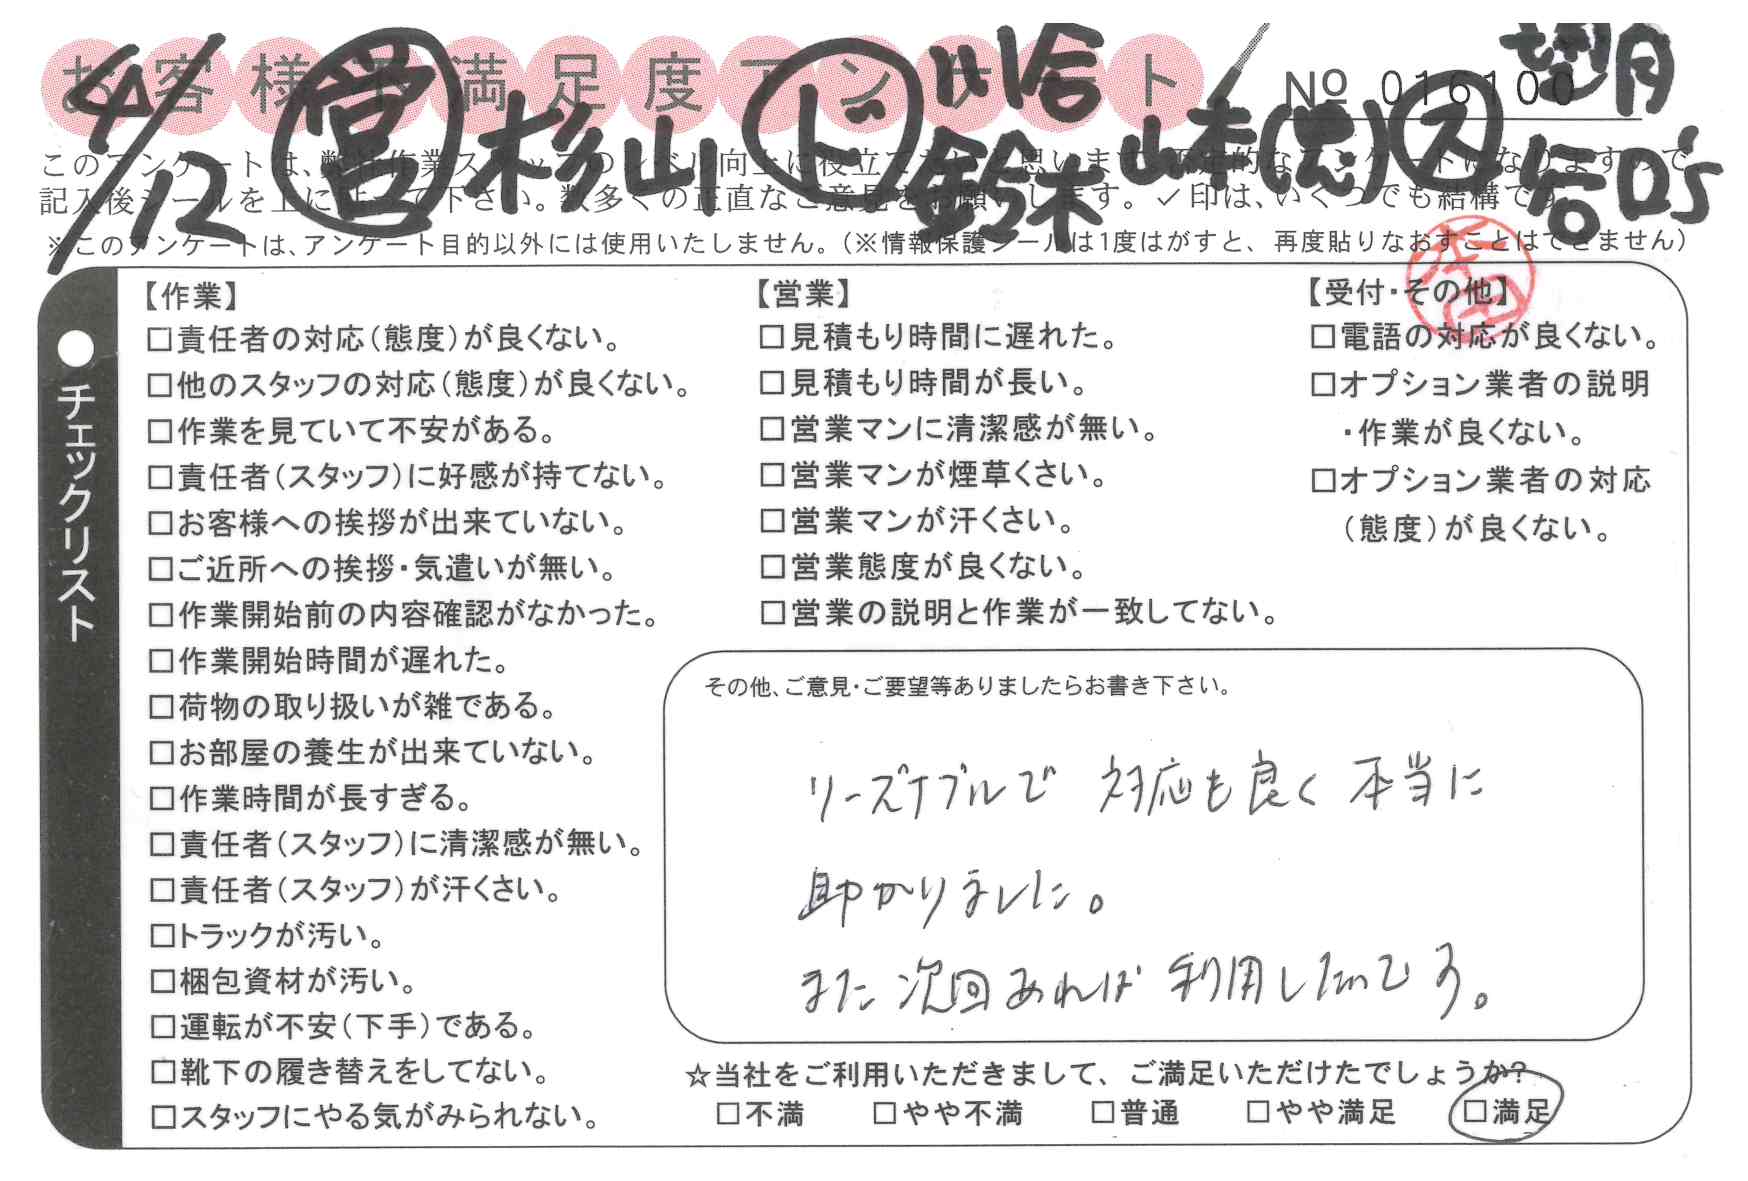 お客様不満足度アンケート
No 016100
4/12 営 杉山 ド 川合 鈴木 山本(志) ス 望月 D's
※このアンケートは、アンケート目的以外には使用いたしません。（※情報保護シールは1度はがすと、再度貼りなおすことはできません）
●チェックリスト
【作業】
□責任者の対応（態度）が良くない。
□他のスタッフの対応（態度）が良くない。
□作業を見ていて不安がある。
□責任者（スタッフ）に好感が持てない。
□お客様への挨拶が出来ていない。
□ご近所への挨拶・気遣いが無い。
□作業開始前の内容確認がなかった。
□作業開始時間が遅れた。
□荷物の取り扱いが雑である。
□お部屋の養生が出来ていない。
□作業時間が長すぎる。
□責任者（スタッフ）に清潔感が無い。
□責任者（スタッフ）が汗くさい。
□トラックが汚い。
□梱包資材が汚い。
□運転が不安（下手）である。
□靴下の履き替えをしてない。
□スタッフにやる気がみられない。
【営業】
□見積もり時間に遅れた。
□見積もり時間が長い。
□営業マンに清潔感が無い。
□営業マンが煙草くさい。
□営業マンが汗くさい。
□営業態度が良くない。
□営業の説明と作業が一致してない。
【受付・その他】
□電話の対応が良くない。
□オプション業者の説明
・作業が良くない。
□オプション業者の対応
（態度）が良くない。
その他、ご意見・ご要望等ありましたらお書き下さい。
リーズナブルで 対応も良く 本当に
助かりました。
また次回あれば 利用したいです。
☆当社をご利用いただきまして、ご満足いただけたでしょうか?
□不満 □やや不満 □普通 □やや満足 □満足